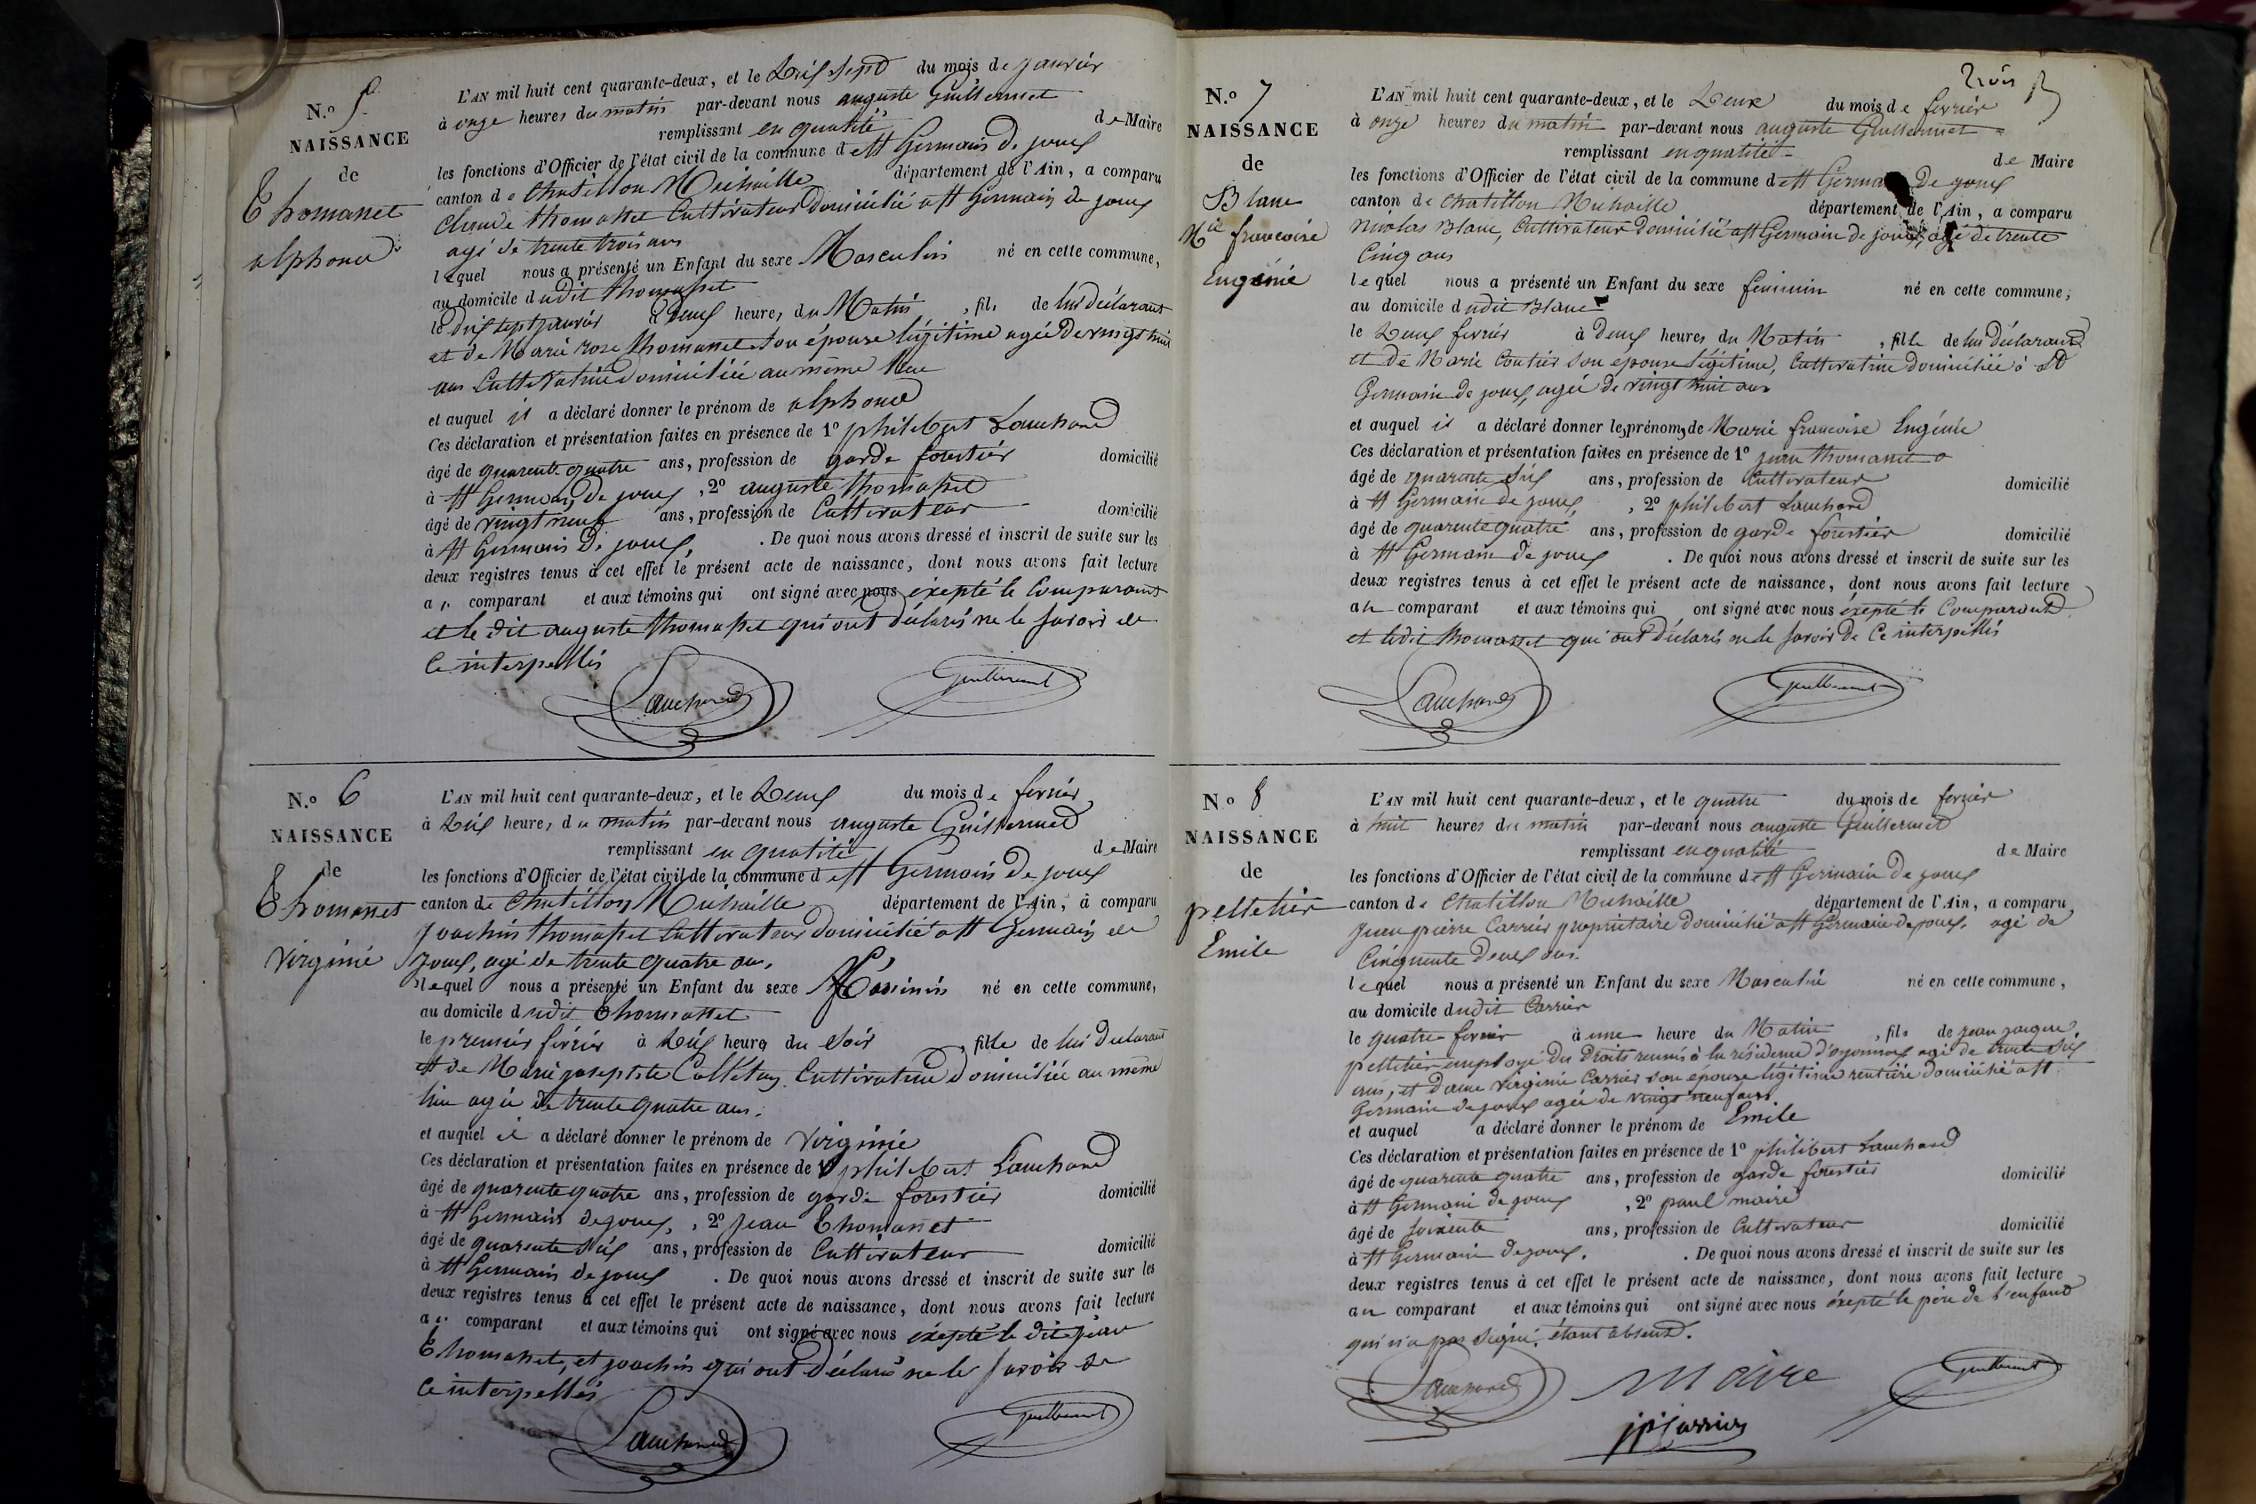 N.o 5
NAISSANCE
de
Thomasset
alphonce
L'AN mil huit cent quarante-deux, et le Dix Sept du mois de janvier
à onze heures du matin par-devant nous auguste Guillermet
remplissant en qualité de Maire
les fonctions d'Officier de l'état civil de la commune de St Germain de joux
canton de Chatillon Michaille département de l'Ain, a comparu
Claude thomasset Cultivateur domicilié a St Germain de joux
agé de trente trois ans
lequel nous a présenté un Enfant du sexe Masculin né en cette commune,
au domicile dudit thomasset
le dix sept janvier à Deux heures du Matin, fils de lui déclarant
et de Marie rose thomasset son épouse légitime agée de vingt huit
ans Cultivatrice domiciliée au même lieu
et auquel il a déclaré donner le prénom de alphonce
Ces déclaration et présentation faites en présence de 1o philibert Lauchard
âgé de quarente quatre ans, profession de garde forestier domicilié
à St Germain de joux, 2o auguste thomasset
âgé de vingt neuf ans, profession de Cultivateur domicilié
à St Germain de joux, . De quoi nous avons dressé et inscrit de suite sur les
deux registres tenus à cet effet le présent acte de naissance, dont nous avons fait lecture
au comparant et aux témoins qui ont signé avec nous éxepté le Comparant
et le dit auguste thomasset qui ont déclaré ne le savoir de
Ce interpellés
Lauchard Guillermet
N.o 6
NAISSANCE
de
Thomasset
Virginie
L'AN mil huit cent quarante-deux, et le Deux du mois de fevrier
à Dix heures du matin par-devant nous auguste Guillermet
remplissant en qualité de Maire
les fonctions d'Officier de l'état civil de la commune de St Germain de joux
canton de Chatillon Michaille département de l'Ain, a comparu
joachin thomasset Cultivateur domicilié a St Germain de
joux, agé de trente quatre ans,
lequel nous a présenté un Enfant du sexe Féminin né en cette commune,
au domicile dudit Thomasset
le premier février à Dix heures du Soir, fille de lui declarant
et de Marie josephte Collétaz Cultivatrice domiciliée au même
lieu agée de trente quatre ans.
et auquel il a déclaré donner le prénom de Virginie
Ces déclaration et présentation faites en présence de 1o philibert Lauchard
âgé de quarente quatre ans, profession de garde forestier domicilié
à St Germain de joux, 2o jean Thomasset
âgé de quarente Six ans, profession de Cultivateur domicilié
à St Germain de joux . De quoi nous avons dressé et inscrit de suite sur les
deux registres tenus à cet effet le présent acte de naissance, dont nous avons fait lecture
au comparant et aux témoins qui ont signé avec nous éxepté le dit jean
Thomasset, et joachin qui ont déclaré ne le savoir de
Ce interpellés
Lauchard Guillermet
trois
N.o 7
NAISSANCE
de
Blanc
Mie francoise
Eugénie
L'AN mil huit cent quarante-deux, et le Deux du mois de fevrier
à onze heures du matin par-devant nous auguste Guillermet
remplissant en qualité de Maire
les fonctions d'Officier de l'état civil de la commune de St Germain De joux
canton de Chatillon Michaille département de l'Ain, a comparu
Nicolas Blanc, Cultivateur domicilié a St Germain de joux, agé de trente
Cinq ans
lequel nous a présenté un Enfant du sexe feminin né en cette commune,
au domicile dudit Blanc
le Deux fevrier à deux heures du Matin, fille de lui déclarant
et de Marie Coutier son epouse légitime, Cultivatrice domiciliée à St
Germain de joux, agée de vingt huit ans
et auquel il a déclaré donner les prénoms de Marie francoise Eugénie
Ces déclaration et présentation faites en présence de 1o jean thomasset
âgé de quarente Six ans, profession de Cultivateur domicilié
à St Germain de joux, , 2o philibert Lauchard
âgé de quarente quatre ans, profession de garde forestier domicilié
à St Germain de joux . De quoi nous avons dressé et inscrit de suite sur les
deux registres tenus à cet effet le présent acte de naissance, dont nous avons fait lecture
au comparant et aux témoins qui ont signé avec nous éxepté le Comparant
et ledit thomasset qui ont déclaré ne le savoir de Ce interpellés
Lauchard Guillermet
N.o 8
NAISSANCE
de
pelletier
Emile
L'AN mil huit cent quarante-deux, et le quatre du mois de fevrier
à huit heures du matin par-devant nous auguste Guillermet
remplissant en qualité de Maire
les fonctions d'Officier de l'état civil de la commune de St Germain de joux
canton de Chatillon Michaille département de l'Ain, a comparu
jean pierre Carrier propriétaire domicilié a St Germain de joux, agé de
Cinquente deux ans.
lequel nous a présenté un Enfant du sexe Masculin né en cette commune,
au domicile dudit Carrier
le quatre fevrier à une heure du Matin, fils de jean jacques
pelletier employé des Droits reunis à la résidence d'oyonnax agé de trente Six
ans, et dame Virginie Carrier son épouse légitime rentière domicilié a St
Germain de joux agée de vingt neuf ans
et auquel a déclaré donner le prénom de Emile
Ces déclaration et présentation faites en présence de 1o philibert Lauchard
âgé de quarente quatre ans, profession de garde forestier domicilié
à St Germain de joux , 2o paul maire
âgé de soixente ans, profession de Cultivateur domicilié
à St Germain de joux. . De quoi nous avons dressé et inscrit de suite sur les
deux registres tenus à cet effet le présent acte de naissance, dont nous avons fait lecture
au comparant et aux témoins qui ont signé avec nous éxepté le père de l'enfant
qui n'a pas signé, étant absent.
Lauchard Maire Guillermet
jpCarrier